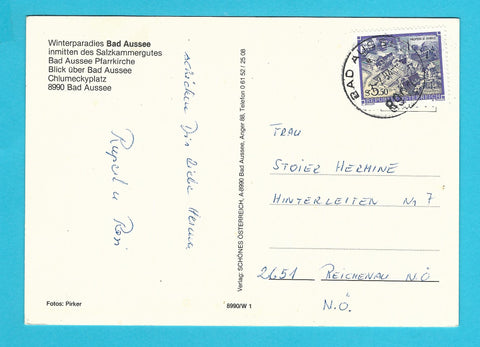 Winterparadies Bad Aussee
inmitten des Salzkammergutes
Bad Aussee Pfarrkirche
Blick über Bad Aussee
Chlumeckyplatz
8990 Bad Aussee
schicken Dir liebe
Rupert u Rosi
Fotos: Pirker
Verlag: SCHÖNES ÖSTERREICH, A-8990 Bad Aussee, Anger 88, Telefon 0 61 52 / 25 08
8990/W 1
BAD AUS
S 5.50
REPUBLIK ÖSTERREICH
FRAU
STOIER HERMINE
HINTERLEITEN Nr 7
2651 REICHENAU N.Ö
N.Ö.